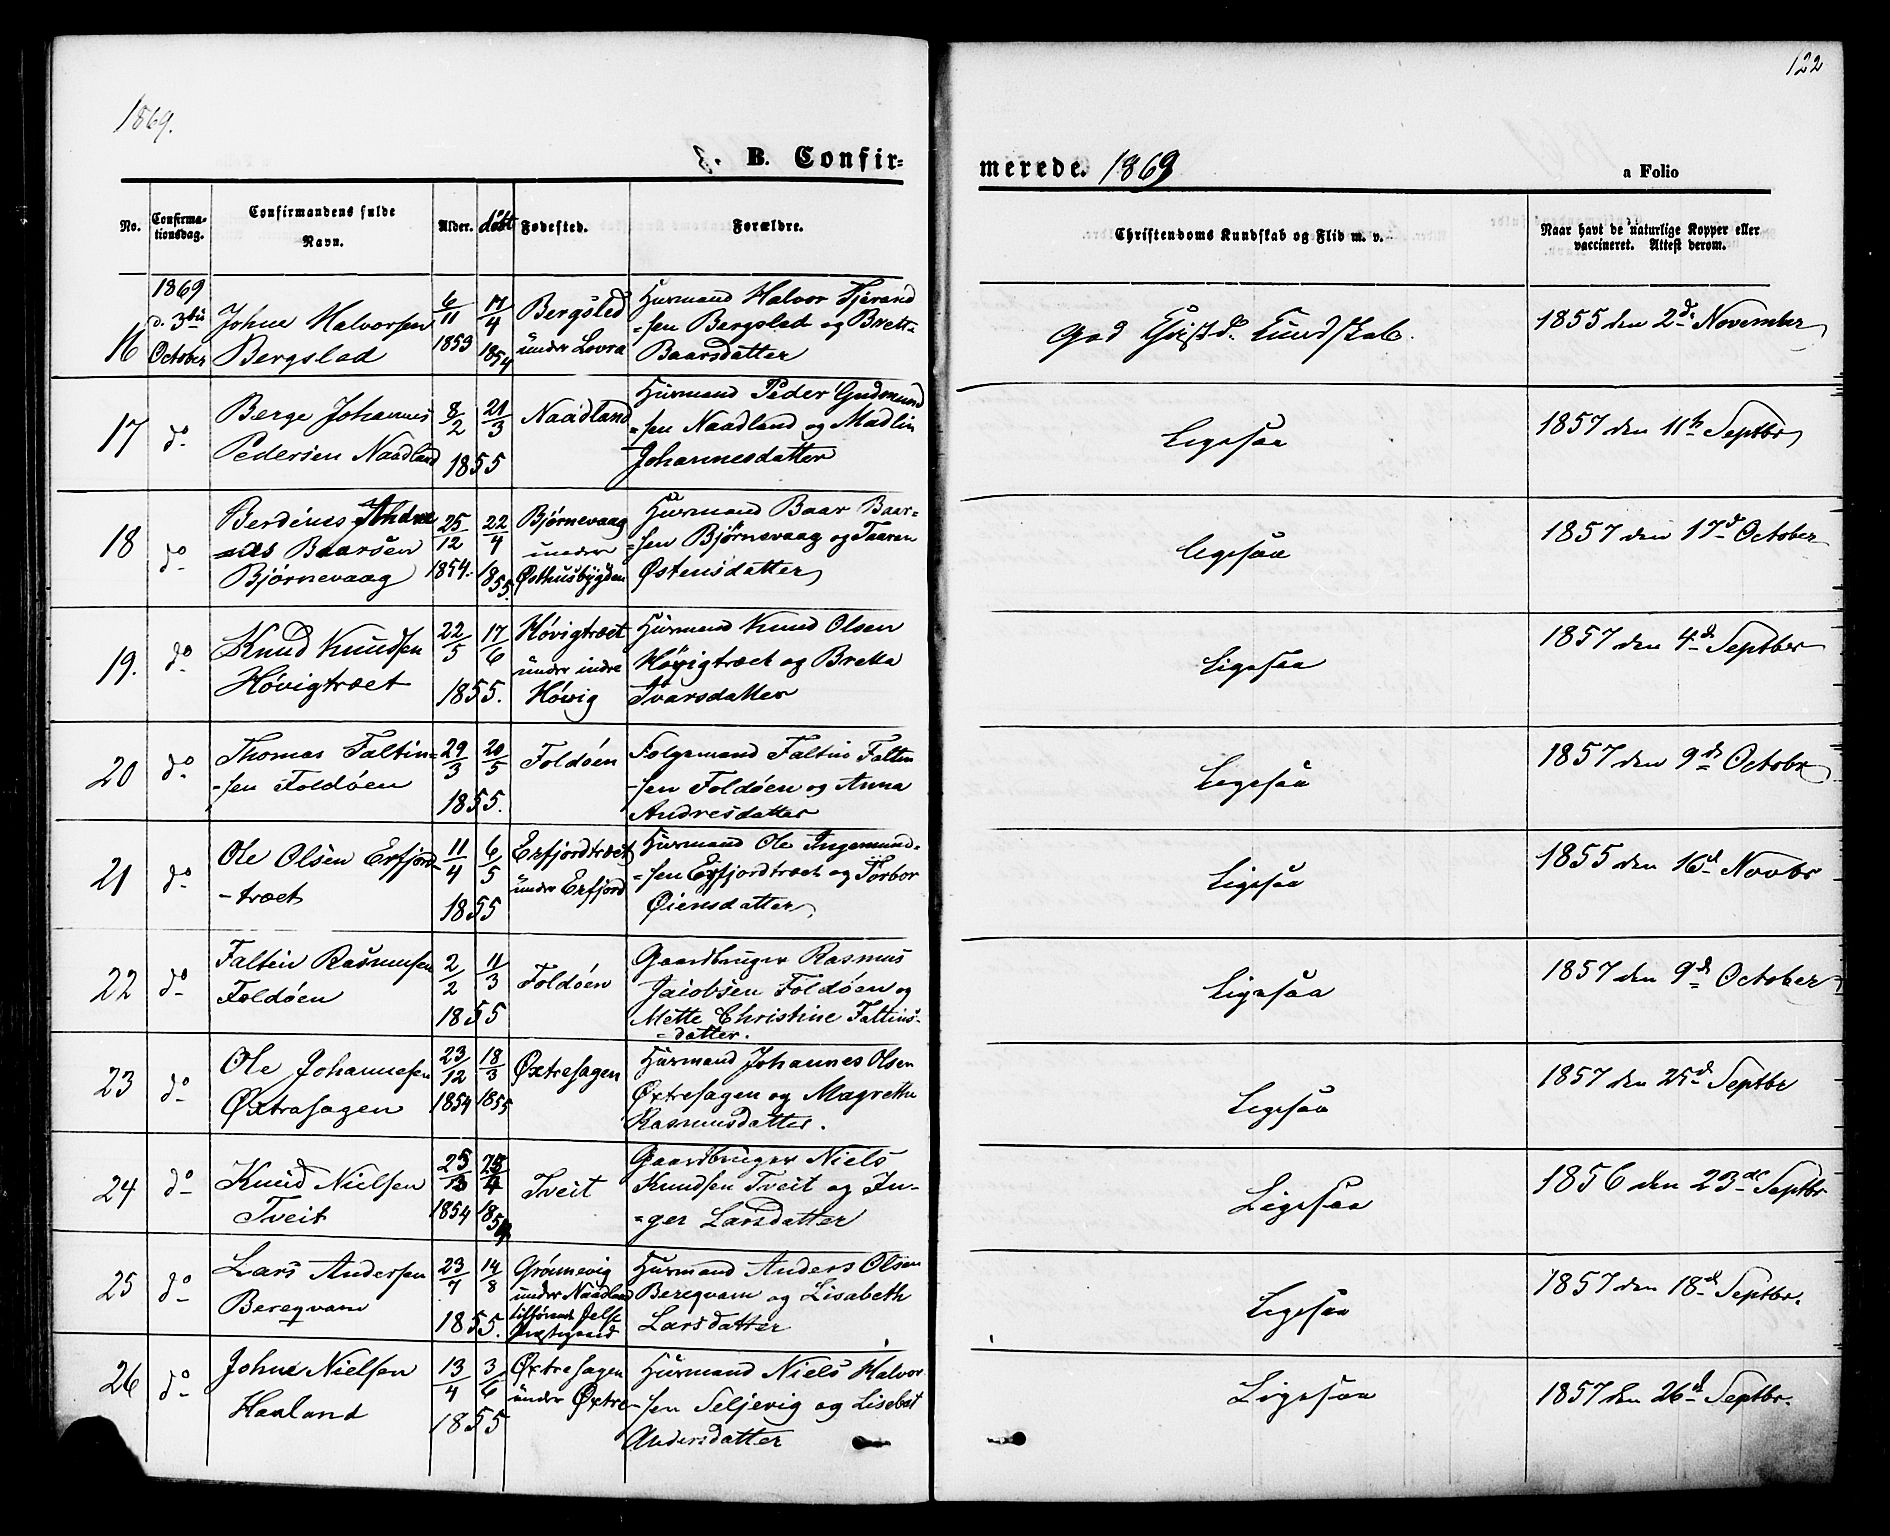 1869.
122
B. Confir-
merede. 1869
a Folio
No.
Confirma-
tionsdag.
Confirmandens fulde
Navn.
Alder.
døbt
Fødested.
Forældre.
Christendoms Kundskab og Flid m. v.
Naar havt de naturlige Kopper eller
vaccineret. Attest derom.
16
1869
d. 3die
October
Johne Halvorsen
Bergslad
6/11
1853
17/4
1854
Bergslad
under Lovra
Huusmand Halvor Tjerand
-sen Bergslad og Brett-
Baarsdatter
God Christd. Kundskab.
1855 den 2d November
17
do
Berge Johannes
Pedersen Naadland
8/2
21/3
1855
Naadland
Huusmand Peder Gudmund
-sen Naadland og Madlin
Johannesdatter
Ligesaa
1857 den 11te Septbr
18
do
Bjørnevaag
25/12
1854.
22/4
1855.
Bjørnevaag
under
Østhusbygden
Huusmand Baar Baar-
-sen Bjørnevaag og Taaren
Østensdatter
Ligesaa
1857 den 17d October
19.
do
Knud Knudsen
Høvigtræet
22/5
17/6
1855.
Høvigtræet
under indre
Høvig
Huusmand Knud Olsen
Høvigtræet og Bretta
Ivarsdatter
Ligesaa
1857 den 4d Septber
20
do
Thomas Faltin-
-sen Foldøen
29/3
20/5
1855.
Foldøen
Folgemand Faltin Faltin
-sen Foldøen og Anna
Andresdatter
Ligesaa
1857 den 9d Octobr
21
do
Ole Olsen Erfjord-
-træet
11/4
6/5
1855
Erfjordtræet
under Erfjord
Huusmand Ole Ingemund-
-sen Erfjordtræet og Torbor
Øiensdatter
Ligesaa
1855 den 16d Novbr
22
do
Faltin Rasmusen
Foldøen
2/2
11/3
1855
Foldøen
Gaardbruger Rasmus
Jacobsen Foldøen og
Mette Christine Faltins-
-datter.
Ligesaa
1857 den 9d October
23
do
Ole Johannesen
Øxtrasagen
23/12
1854
18/3
1855
Øxtresagen
Huusmand Johannes Olsen
Øxtresagen og Magrethe
Rasmusdatter.
Ligesaa
1857 den 25d Septbr
24
do
Knud Nielsen
Tveit
1854
Tveit
Gaardbruger Niels
Knudsen Tveit og In-
-ger Larsdatter
Ligesaa
1856 den 23de Septbr
25
do
Lars Andersen
Bereqvam
23/7
14/8
1855.
Grønnevig
under Naadland
tilhørende Jelse
Præstegaard
Huusmand Anders Olsen
Bereqvam og Lisabeth
Larsdatter
Ligesaa
1857 den 18d Septbr.
26
do
Johne Nielsen
Haaland
13/4
3/6
1855
Øxtresagen
under Øxtre
Huusmand Niels Halvor
-sen Seljevig og Lisebet
Andersdatter
Ligesaa
1857 den 26d Septbr.